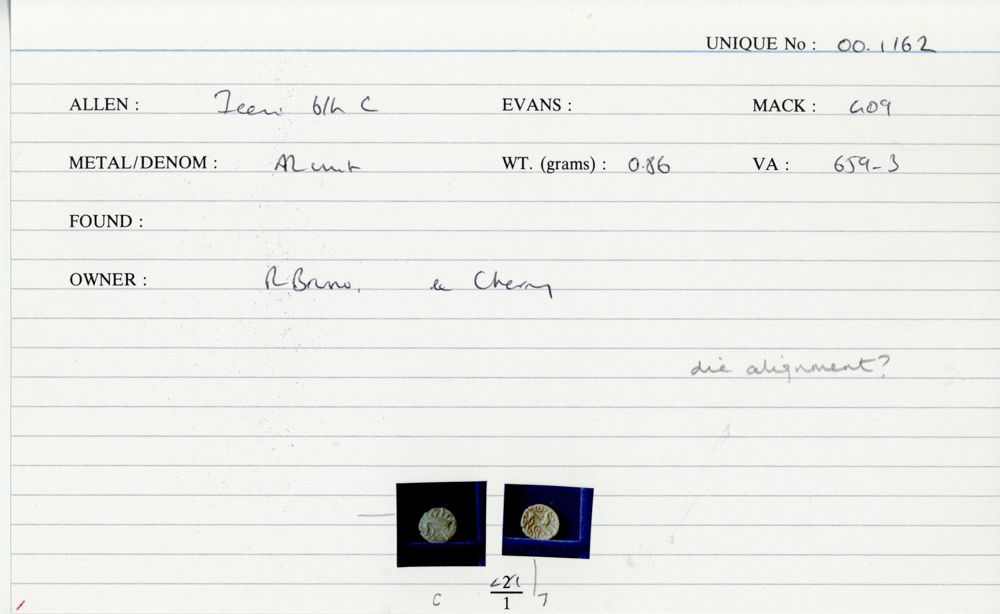 UNIQUE No : 00.1162
ALLEN : Iceni b/h C EVANS : MACK : 409
METAL/DENOM : AR unit WT. (grams) : 0.86 VA : 659-3
FOUND :
OWNER : R Bruno. ex Cherry
die alignment?
C 1 7